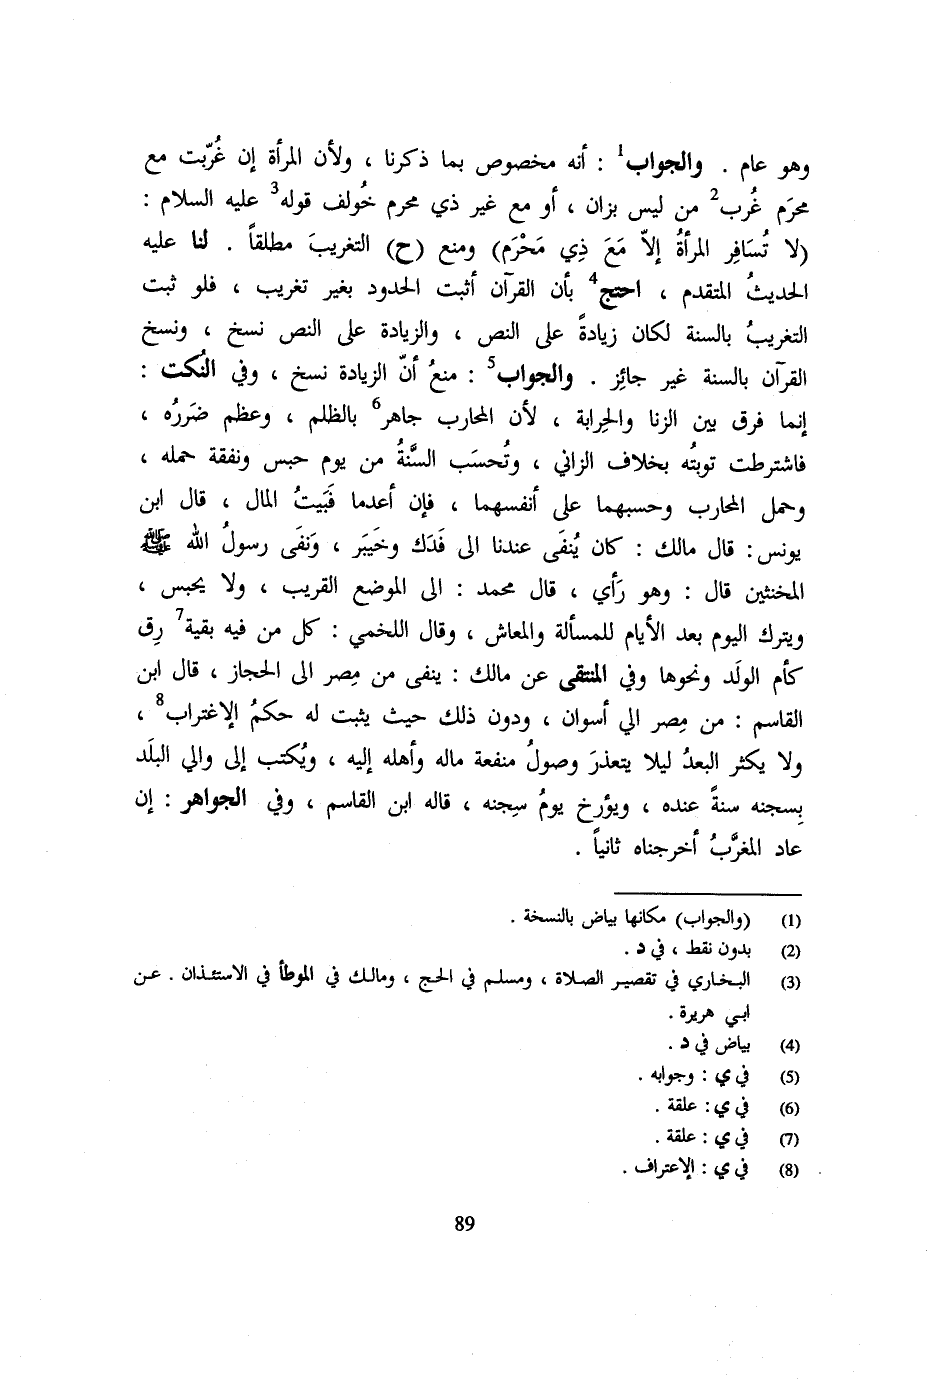 وهو عام . والجواب1 : أنه مخصوص بما ذكرنا ، ولأن المرأة إن غُرّبت مع
محرَم غُرب2 من ليس بزان ، أو مع غير ذي محرم خُولف قوله3 عليه السلام :
(لا تُسَافِر المرأةُ إلاّ مَعَ ذِي مَحْرَم) ومنع (ح) التغريبَ مطلقاً . لنا عليه
الحديثُ المتقدم ، احتج4 بأن القرآن أثبت الحدود بغير تغريب ، فلو ثبت
التغريبُ بالسنة لكان زيادةً على النص ، والزيادة على النص نسخ ، ونسخ
القرآن بالسنة غير جائِز . والجواب5 : منعُ أنّ الزيادة نسخ ، وفي النُكت :
إنما فرق بين الزنا والحِرابة ، لأن المحارب جاهر6 بالظلم ، وعظم ضَررُه ،
فاشترطت توبتُه بخلاف الزاني ، وتُحسَب السَّنةُ من يوم حبس ونفقة حمله ،
وحمل المحارب وحسبهما على أنفسهما ، فإن أعدما فَبَيتُ المال ، قال ابن
يونس : قال مالك : كان يُنفَى عندنا الى فَدَك وخَيبَر ، وَنفَى رسولُ الله ﷺ
المخنثين قال : وهو رَأي ، قال محمد : الى الموضع القريب ، ولا يحبس ،
ويترك اليوم بعد الأيام للمسألة والمعاش ، وقال اللخمي : كل من فيه بقية7 رِق
كأم الولَد ونحوها وفي المنتقى عن مالك : ينفى من مِصر الى الحجاز ، قال ابن
القاسم : من مِصر الي أسوان ، ودون ذلك حيث يثبت له حكمُ الإغتراب8 ،
ولا يكثر البعدُ ليلا يتعذرَ وصولُ منفعة ماله وأهله إليه ، ويُكتب إلى والي البلَد
بِسجنه سنةً عنده ، ويؤرخ يومُ سِجنه ، قاله ابن القاسم ، وفي الجواهر : إن
عاد المغرَّبُ أخرجناه ثانياً .
(1) (والجواب) مكانها بياض بالنسخة .
(2) بدون نقط ، في د .
(3) البخاري في تقصير الصلاة ، ومسلم في الحج ، ومالك في الموطأ في الاستئذان . عن
ابي هريرة .
(4) بياض في د .
(5) في ي : وجوابه .
(6) في ي : علقة .
(7) في ي : علقة .
(8) في ي : الإعتراف .
89